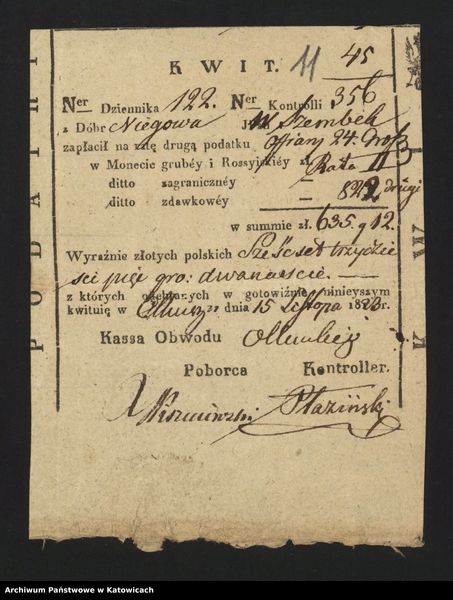 KWIT. 11 45
Ner Dziennika 122. Ner Kontrolli 356
z Dóbr Niegowa JW Szembek
zapłacił na ratę drugą podatku Ofiary 24. Grosz
w Monecie grubéy i Rossyiskiéy zł. Rata II
ditto zagranicznéy — 822 drugi
ditto zdawkowéy
w summie zł. 635. g 12.
Wyraźnie złotych polskich Sześćset trzydzie
ści pięć gro: dwanaście. —
z których odebranych w gotowiźnie ninieyszym
kwituię w dnia 15 Listopa 1823 r.
Kassa Obwodu Olkuskiej
Poborca Kontroller.
Płaziński
PODATKI
Archiwum Państwowe w Katowicach